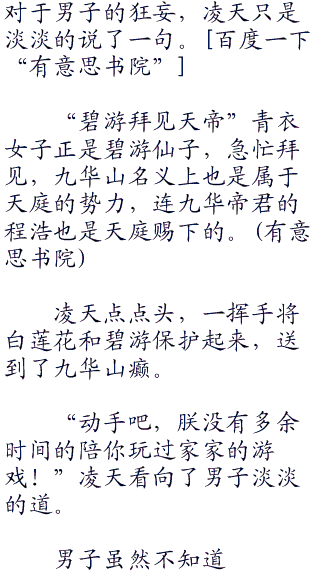 对于男子的狂妄，凌天只是
淡淡的说了一句。[百度一下
“有意思书院”]
“碧游拜见天帝”青衣
女子正是碧游仙子，急忙拜
见，九华山名义上也是属于
天庭的势力，连九华帝君的
程浩也是天庭赐下的。(有意
思书院)
凌天点点头，一挥手将
白莲花和碧游保护起来，送
到了九华山癫。
“动手吧，朕没有多余
时间的陪你玩过家家的游
戏！”凌天看向了男子淡淡
的道。
男子虽然不知道